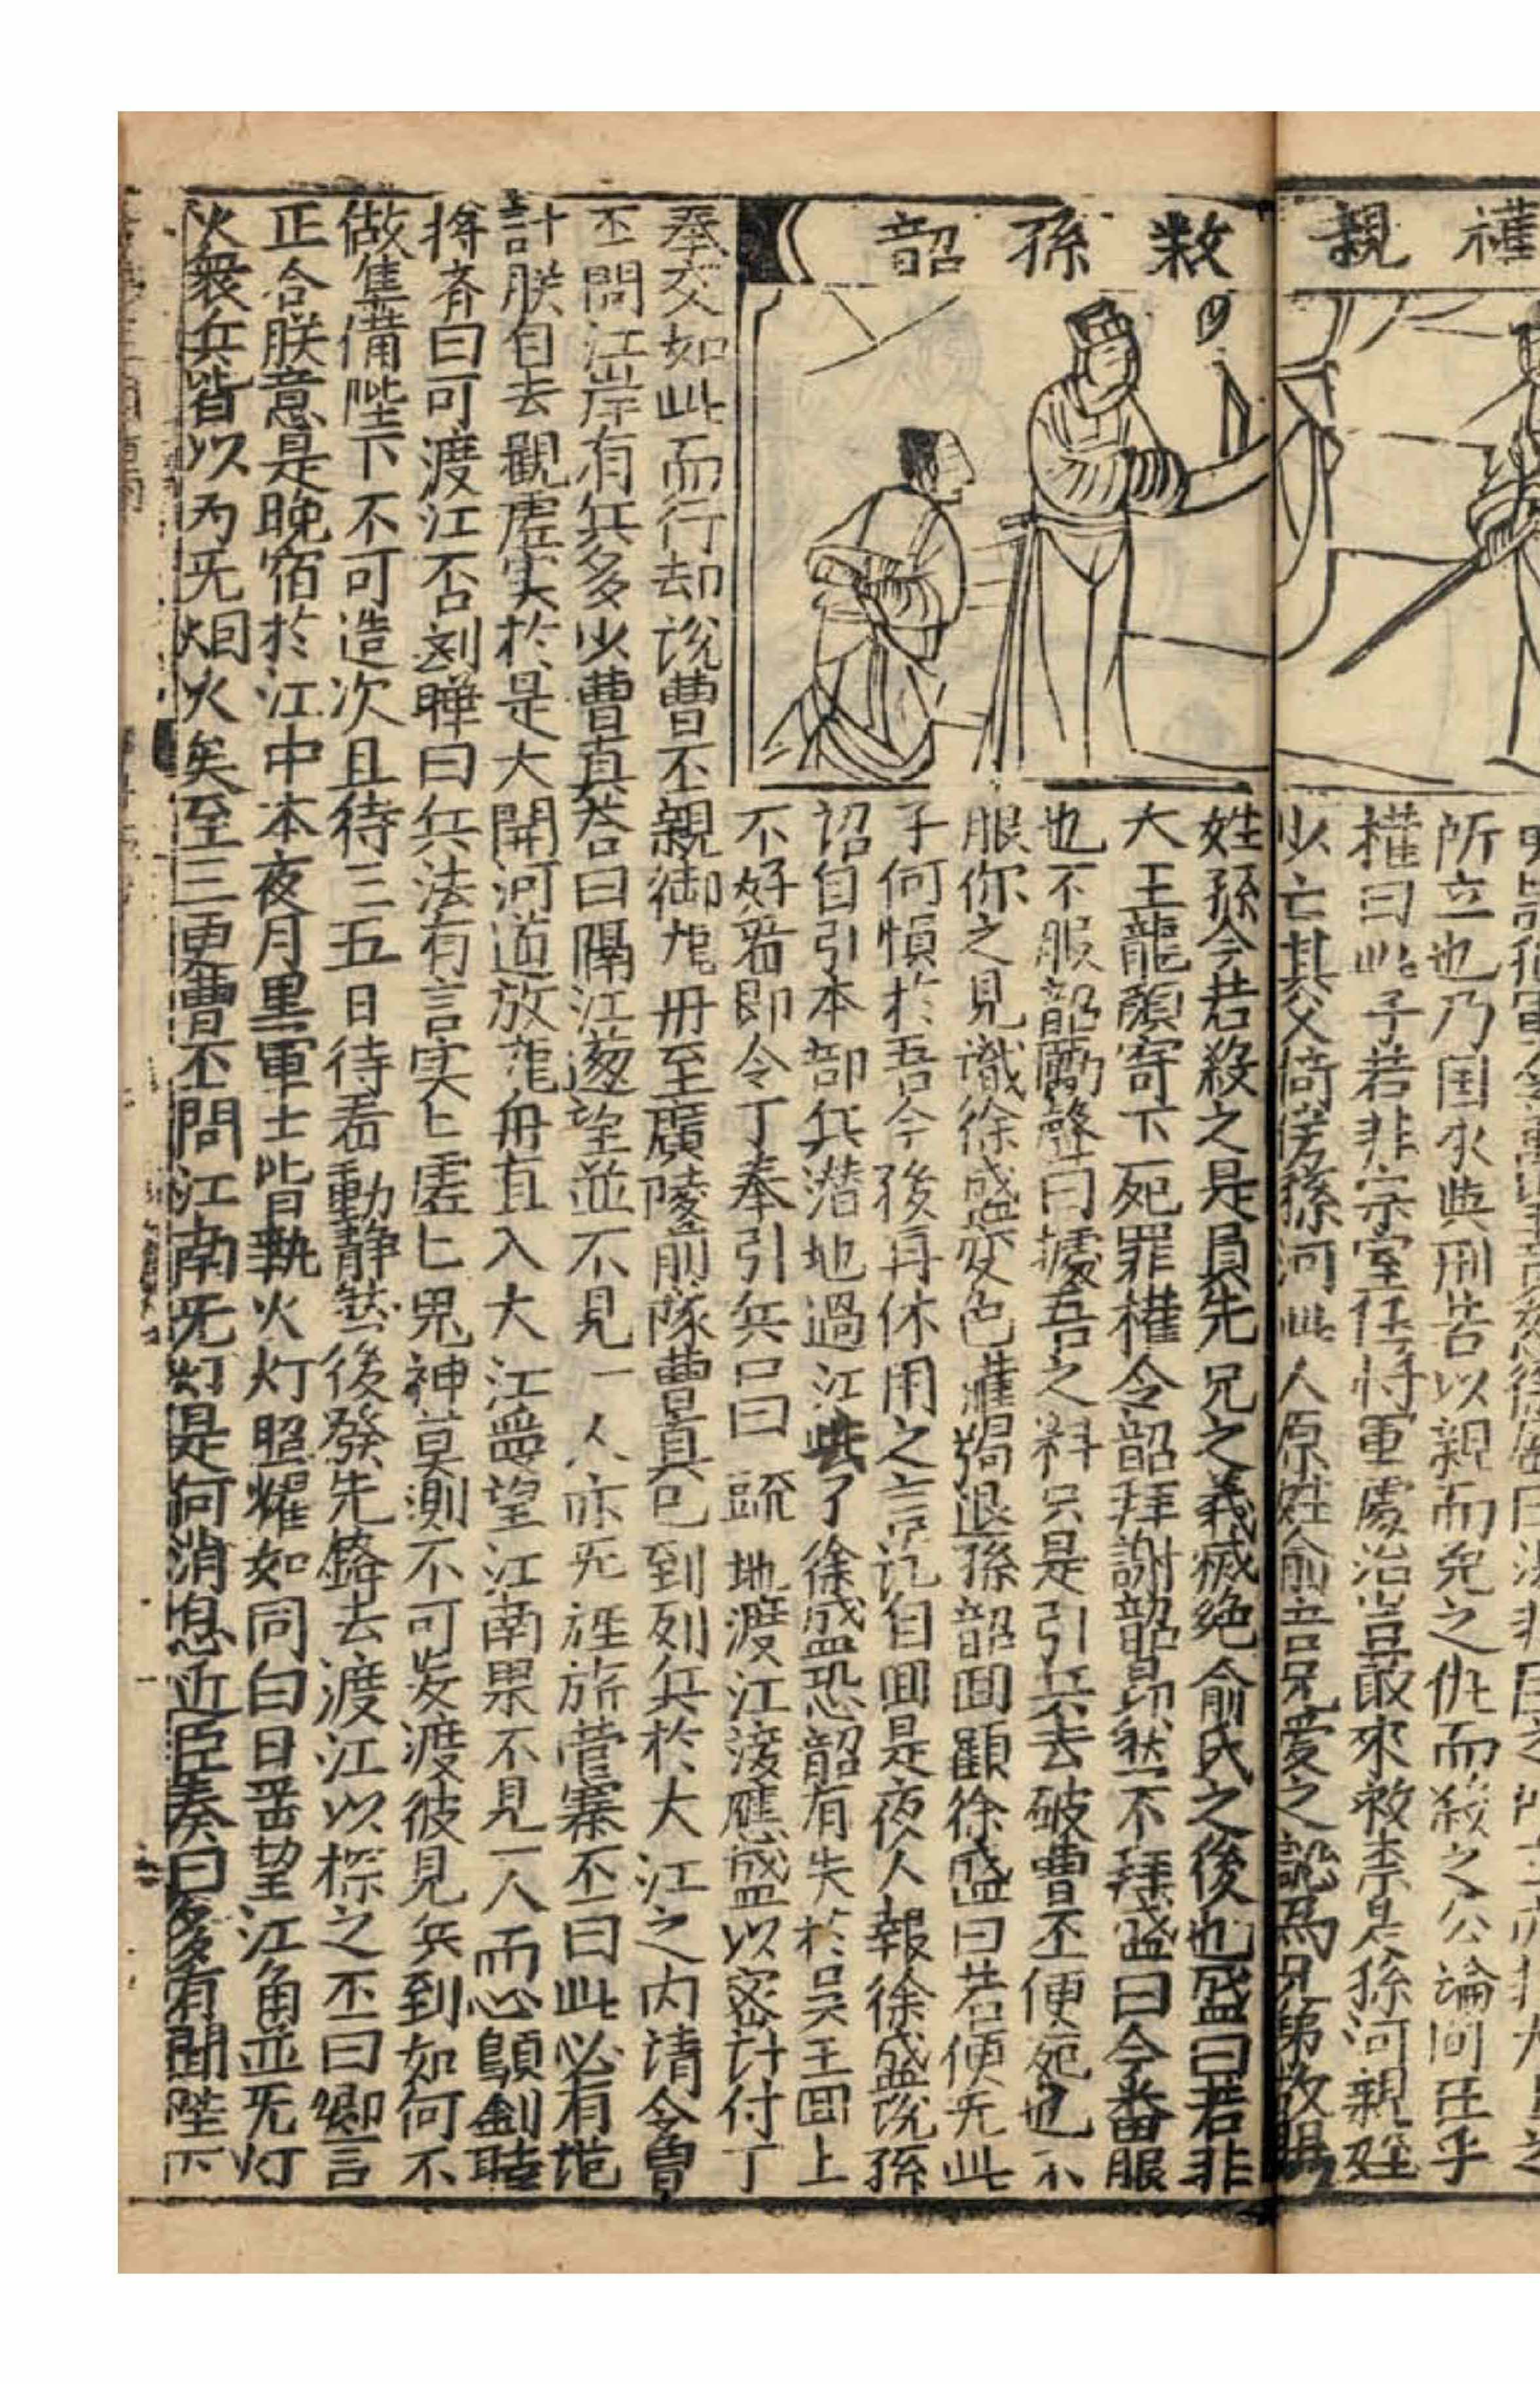 權親
救孫韶
所立也乃国家典刑若以親而免之仇而殺之公論何在乎
權曰此子若非宗室任將重處治豈敢來救柰是孫河親姪
少亡其父倚傍孫河此人原姓俞吾兄愛之認為兄弟故賜
姓孫今若殺之是負先兄之義滅絶俞氏之後也盛曰若非
大王龍顔寄下死罪權令韶拜謝韶昂然不拜盛曰今番服
也不服韶厲聲曰據吾之料只是引兵去破曹丕便死也不
服你之見識徐盛变色權揭退孫韶囬顧徐盛曰若便无此
子何慎於吾今後再休用之言訖自囬是夜人報徐盛說孫
詔自引本部兵潜地過江去了徐盛恐韶有失於吳王囬上
不好看即令丁奉引兵 地渡江接應盛以密計付丁
奉交如此而行却說曹丕親御龍舟至廣陵前隊曹真已到列兵於大江之内請令曹
丕問江岸有兵多少曹真荅曰隔江遙望並不見一人亦无旌旂營寨丕曰此必有詭
計朕自去觀虛实於是大開河道放龍舟直入大江 望江南果不見一人而心 劉曄
蔣济曰可渡江否刘曄曰兵法有言实匕虛匕鬼神莫測不可妄渡彼見兵到如何不
做隼備陛下不可造次且待三五日待看動静然後發先鋒去渡江以探之丕曰卿言
正合朕意是晚宿於江中本夜月黒軍士皆執火灯照耀如同白日遥望江角並无灯
火衆兵皆以为无烟火矣至三更曹丕問江南无灯是何消息近臣奏曰多有聞陛下